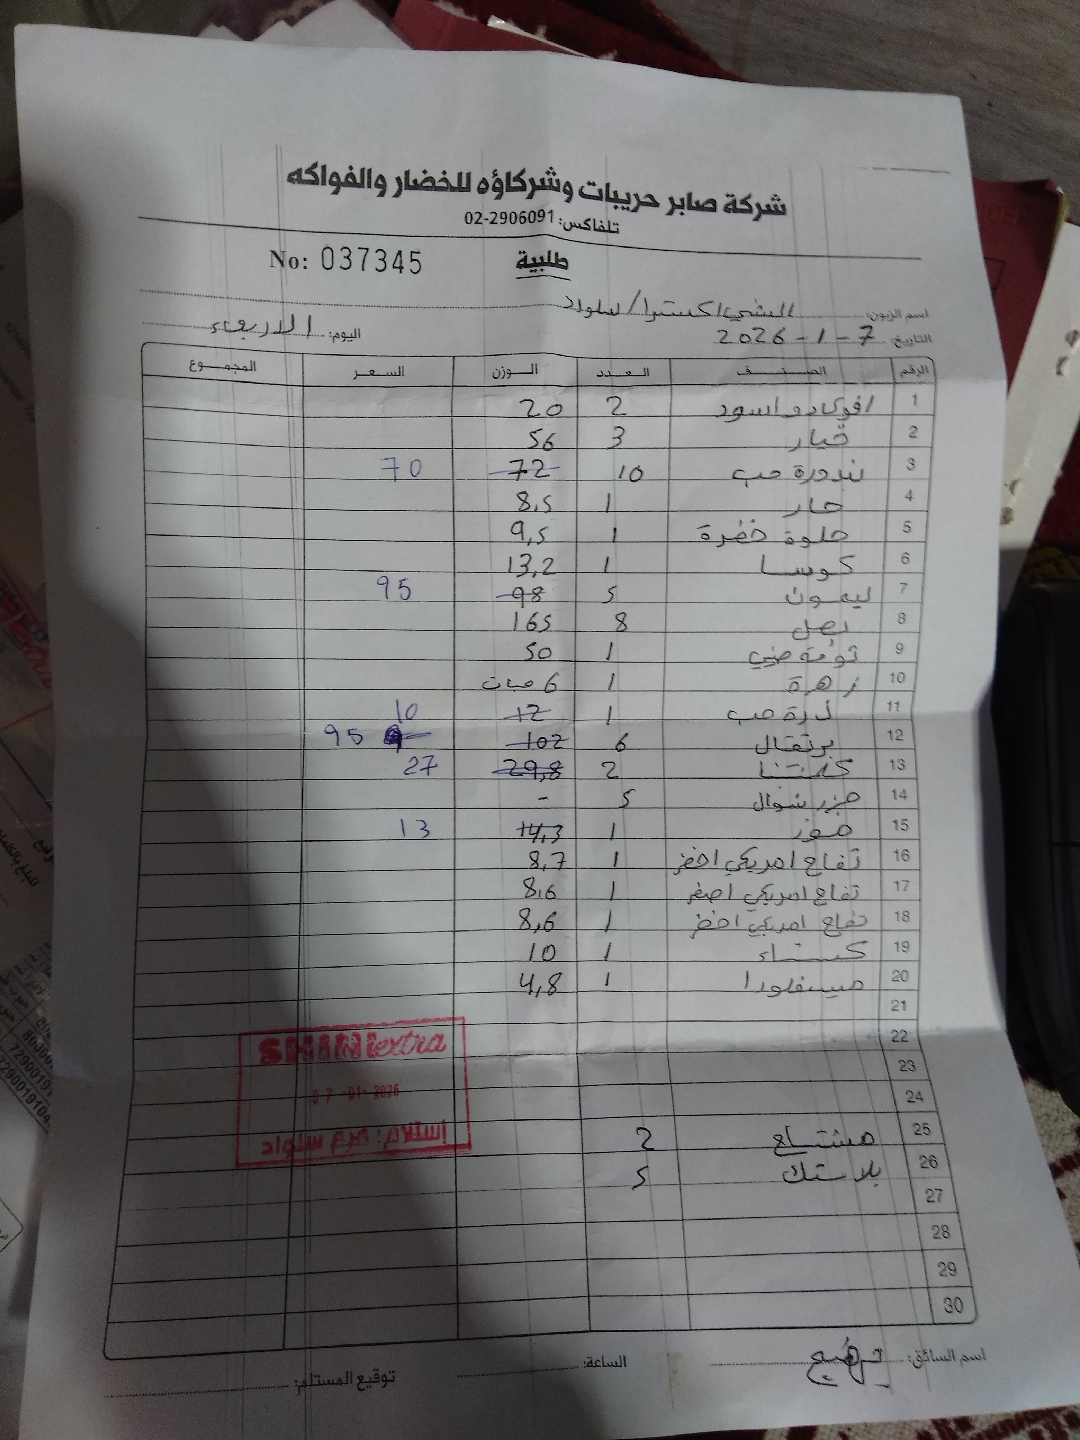 شركة صابر حريبات وشركاؤه للخضار والفواكه
تلفاكس: 02-2906091
No: 037345 طلبية
اسم الزبون: الشني اكسترا / سلواد
التاريخ: 7-1-2026 اليوم: الاربعاء
الرقم الصنف العدد الوزن السعر المجموع
1 افوكادو اسود 2 20
2 خيار 3 56
3 بندورة حب 10 72 70
4 حار 1 8,5
5 حلوة خضرة 1 9,5
6 كوسا 1 13,2
7 ليمون 5 98 95
8 بصل 8 165
9 تومة صيني 1 50
10 زهرة 1 6 حبات
11 ذرة حب 1 12 10
12 برتقال 6 102 95
13 كلمنتينا 2 29,8 27
14 جزر شوال 5 -
15 موز 1 14,3 13
16 تفاح امريكي اخضر 1 8,7
17 تفاح امريكي اصفر 1 8,6
18 تفاح امريكي اخضر 1 8,6
19 كستناء 1 10
20 1 4,8
21
22
23
24
25 مشتاح 2
26 بلاستك 5
27
28
29
30
SHINI extra
07-01-2026
إستلام: فرع سلواد
اسم السائق: الساعة: توقيع المستلم: